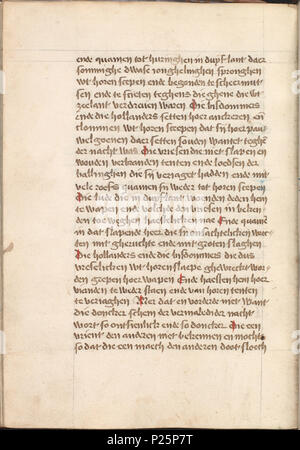 ende quamen tot huzinghen in duyflant daer
sommighe dwase ionghelinghen spronghen
wt horen scepen ende begonden te schermut
sen ende te scieten teghens die ghene die wt
zeelant verdreuen waren Die bisdommers
ende die hollanders setten hoer anckeren en
clommen wt horen scepen daer si hoer pau
welgoenen daer setten souden want et teghe
der nacht was Die vriesen die met slapen en
wouden verbranden tenten ende loedsen der
ballinghen die si veriaget hadden ende mit
vele roefs quamen si weder tot horen scepen
Die lude die in duyflant woenden deden hem
te wapen ende volchde den vriesen in helen
den toe weghen haestelicken nae Ende quamen
in dat slapende heer die si onsachtelicken wec
ten mit gheruchte ende mit groten slaghen
Die hollanders ende die bisdommers die dus
vreselicken wt horen slaepe ghewect wor
den grepen hoer wapen Ende haesten hem hoer
vianden te weder staen ende van horen tenten
te veriaghen Mer dat en vorderde niet want
die doncker schem der vermaledider nacht
wort so onsienlicke ende so doncker Die een
vrient den anderen niet bekennen en mochte
so dat die een moech den anderen doot sloech
alamy
Image ID: P25P7T
www.alamy.com